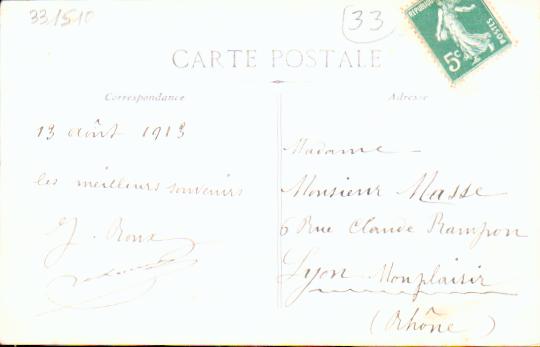 33/510
33
RÉPUBLIQUE
POSTES
5c
CARTE POSTALE
Correspondance
Adresse
13 août 1913
les meilleurs souvenirs
J. Roux
Madame
Monsieur Masse
6 Rue Claude Rampon
Lyon Monplaisir
(Rhône)